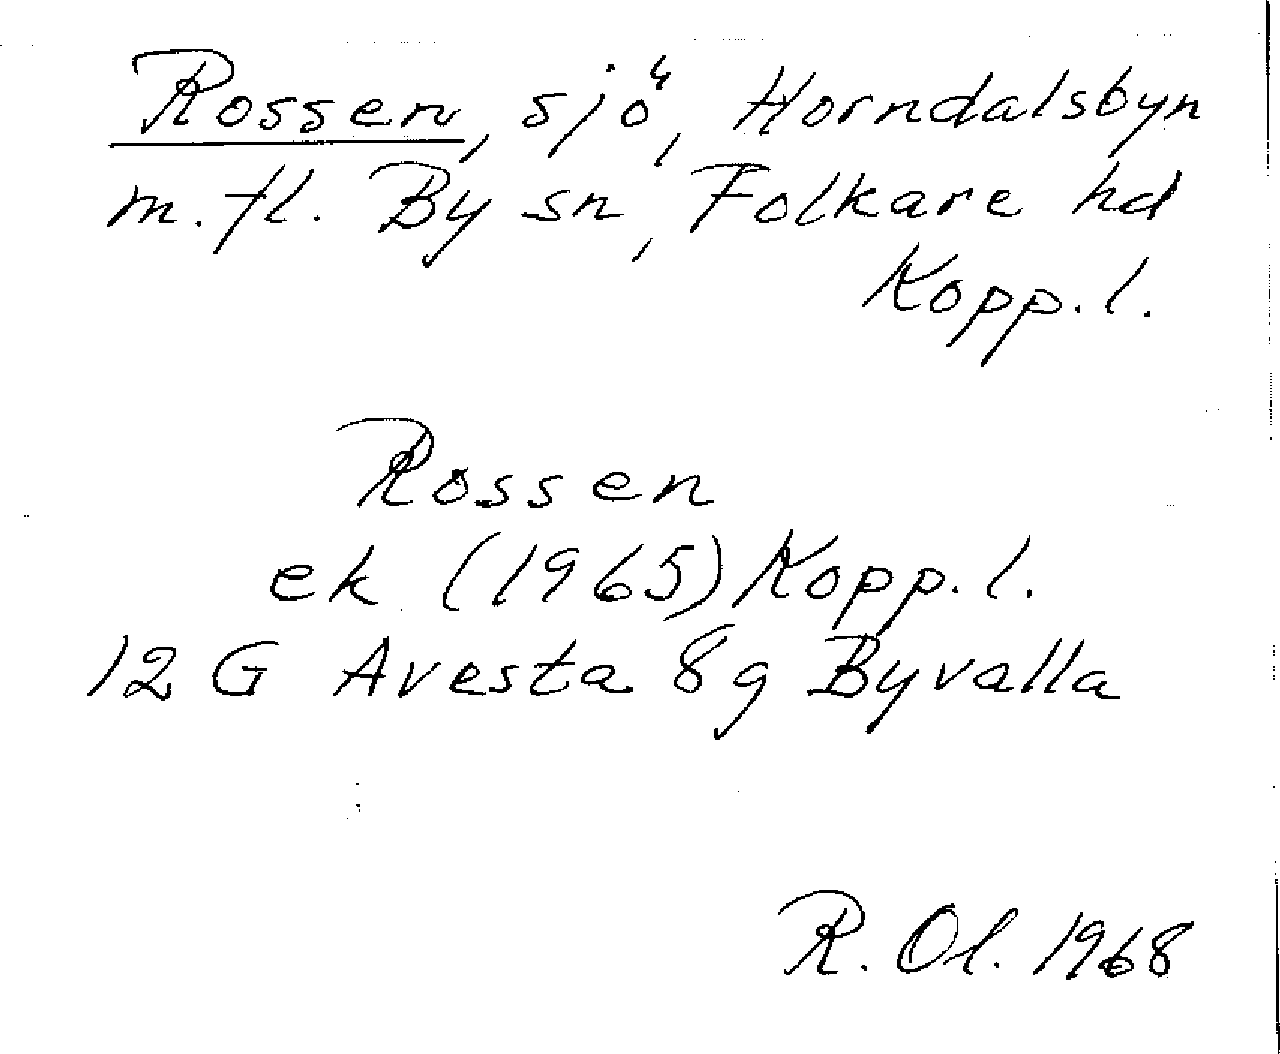 Rossen, sjö, Horndalsbyn
m.fl. By sn, Folkare hd
Kopp.l.
Rossen
ek (1965) Kopp.l.
12 G Avesta 8g Byvalla
R. Ol. 1968